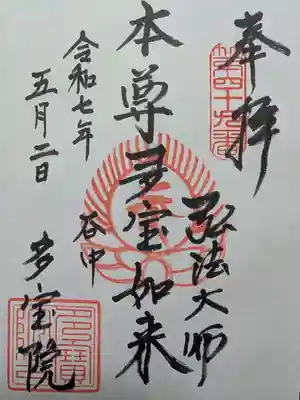 奉拝
第四十九番
弘法大師
本尊多宝如来
谷中
令和七年
五月二日
多宝院